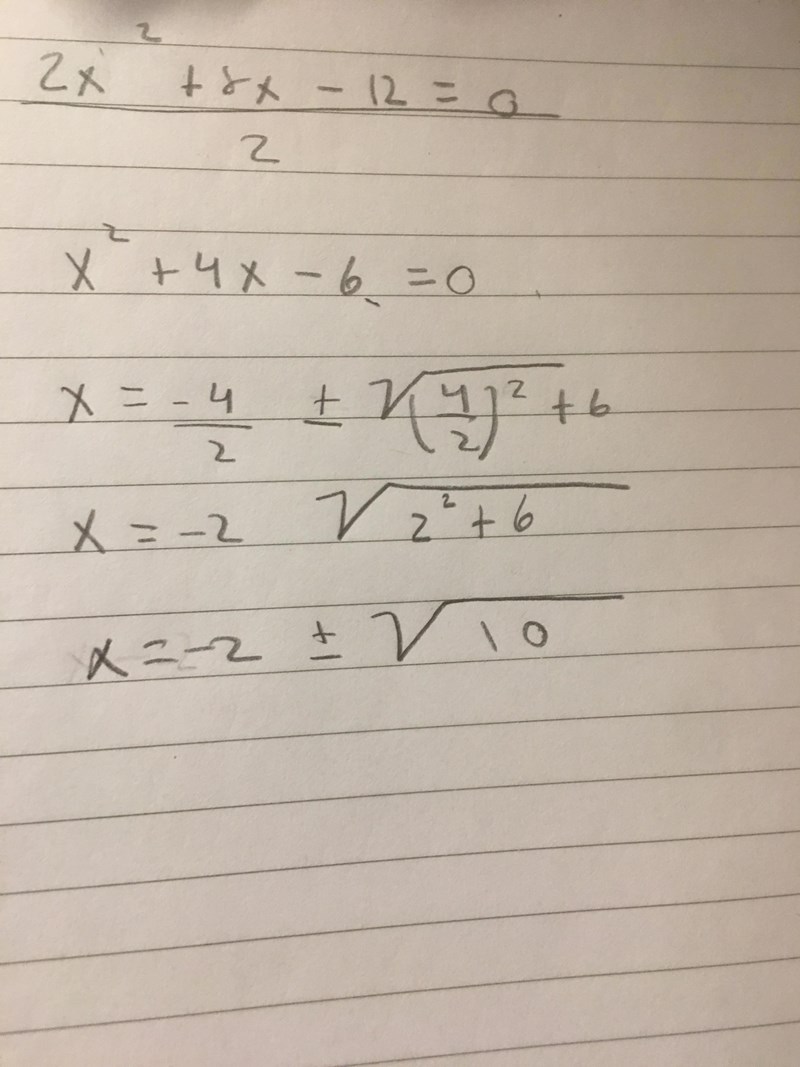 2x² + 8x - 12 = 0
2
x² + 4x - 6 = 0
x = -4/2 ± √(4/2)² + 6
x = -2 √2² + 6
x = -2 ± √10